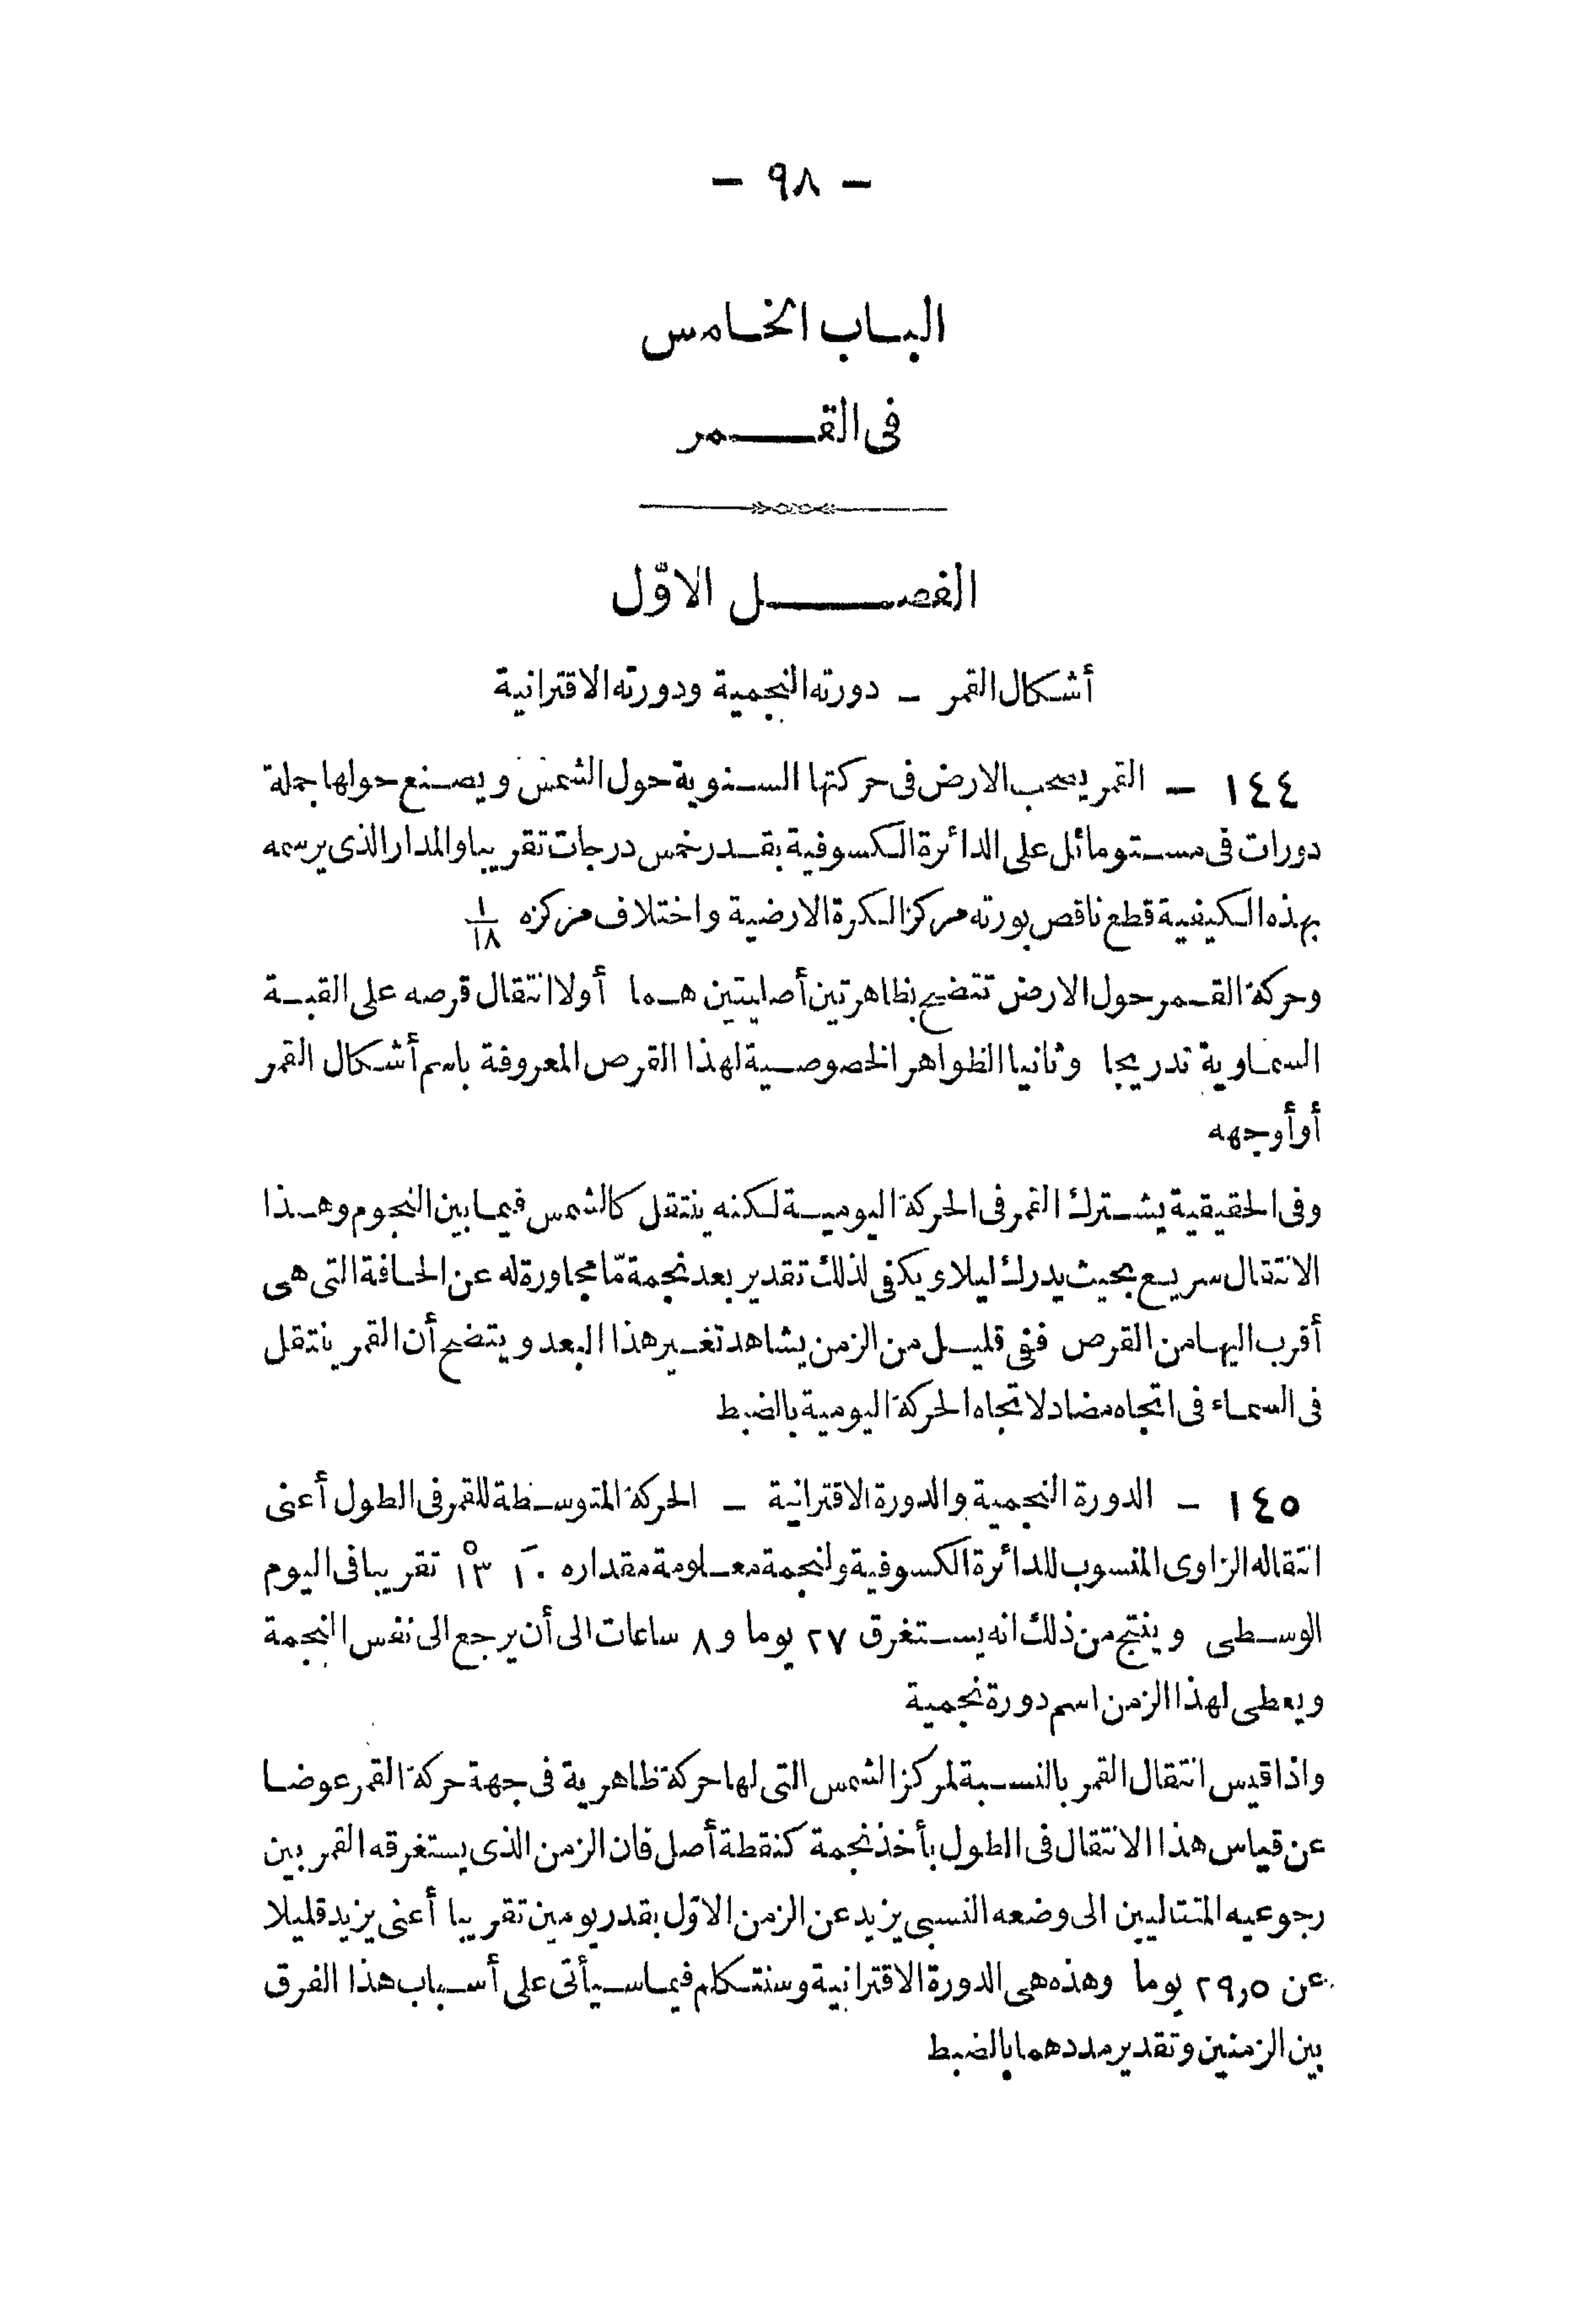 — ٩٨ —
الباب الخامس
فى القمر
الفصل الاوّل
أشكال القمر — دورته النجمية ودورته الاقترانية
١٤٤ — القمر يصحب الارض فى حركتها السنوية حول الشمس ويصنع حولها جملة
دورات فى مستو مائل على الدائرة الكسوفية بقدر خمس درجات تقريبا والمدار الذى يرسمه
بهذه الكيفية قطع ناقص بورته مركز الكرة الارضية واختلاف مركزه ١/١٨
وحركة القمر حول الارض تتضح بظاهرتين أصليتين هما أولا انتقال قرصه على القبة
السماوية تدريجا وثانيا الظواهر الخصوصية لهذا القرص المعروفة باسم أشكال القمر
أو أوجهه
وفى الحقيقية يشترك القمر فى الحركة اليومية لكنه ينتقل كالشمس فيما بين النجوم وهذا
الانتقال سريع بحيث يدرك ليلا ويكفى لذلك تقدير بعد نجمة مّا مجاورة له عن الحافة التى هى
أقرب اليها من القرص ففى قليل من الزمن يشاهد تغير هذا البعد ويتضح أن القمر ينتقل
فى السماء فى اتجاه مضاد لاتجاه الحركة اليومية بالضبط
١٤٥ — الدورة النجمية والدورة الاقترانية — الحركة المتوسطة للقمر فى الطول أعنى
انتقاله الزاوى المنسوب للدائرة الكسوفية ولنجمة معلومة مقداره ١٠′ ١٣° تقريبا فى اليوم
الوسطى وينتج من ذلك انه يستغرق ٢٧ يوما و ٨ ساعات الى أن يرجع الى نفس النجمة
ويعطى لهذا الزمن اسم دورة نجمية
واذا قيس انتقال القمر بالنسبة لمركز الشمس التى لها حركة ظاهرية فى جهة حركة القمر عوضا
عن قياس هذا الانتقال فى الطول بأخذ نجمة كنقطة أصل فان الزمن الذى يستغرقه القمر بين
رجوعيه المتتاليين الى وضعه النسبى يزيد عن الزمن الاوّل بقدر يومين تقريبا أعنى يزيد قليلا
عن ٢٩٫٥ يوما وهذه هى الدورة الاقترانية وسنتكلم فيما سيأتى على أسباب هذا الفرق
بين الزمنين وتقدير مددهما بالضبط